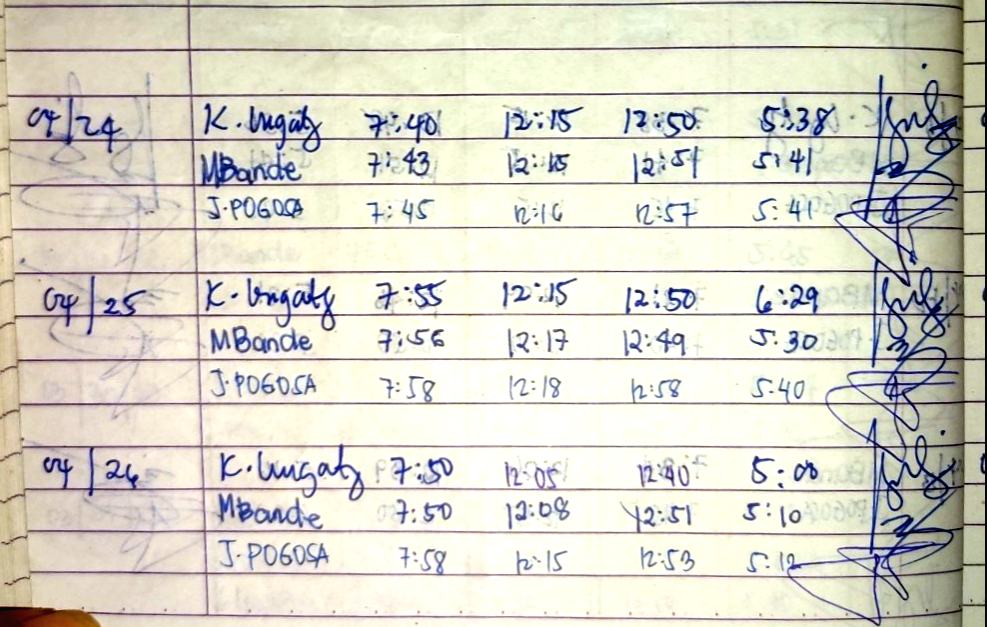 04/24 K. Ungatz 7:40 12:15 12:50 5:38
MBande 7:43 12:15 12:51 5:41
J.POGOSA 7:45 12:16 12:57 5:41
04/25 K. Ungatz 7:55 12:15 12:50 6:29
MBande 7:56 12:17 12:49 5:30
J.POGOSA 7:58 12:18 12:58 5:40
04/26 K. Ungatz 7:50 12:05 12:40 5:00
MBande 7:50 12:08 12:51 5:10
J.POGOSA 7:58 12:15 12:53 5:12